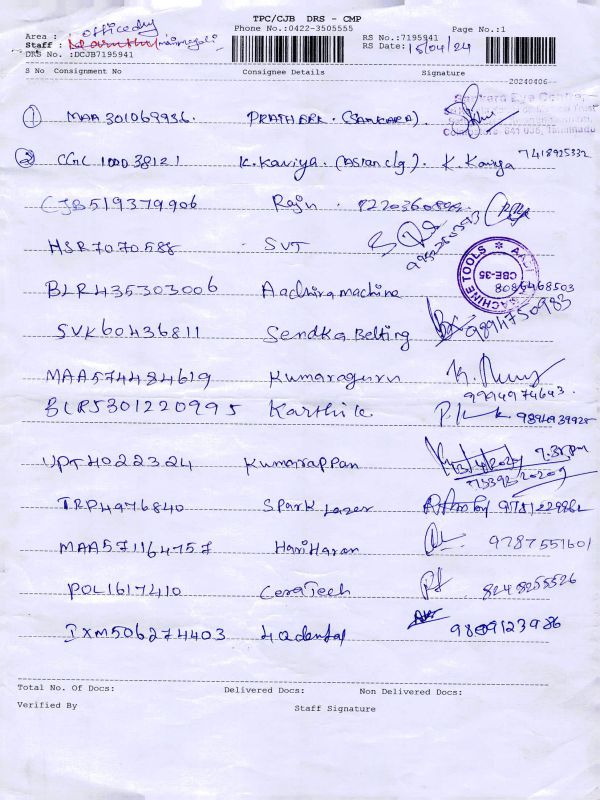 TPC/CJB DRS - CMP
officedry
Area :
Phone No.:0422-3505555
Page No.:1
Staff :
RS No.:7195941
DRS No. :DCJB7195941
RS Date: 15/04/24
S No Consignment No Consignee Details Signature
20240406
① MAA301069936. PRATHEEK. (SANKARA).
② CGC 100038121 K.Kaviya. (Asian clg). K. Kaviya 7418925332
CJB519379906 Raju. 8220360899.
HSR7070588 SVT
MACHINE TOOLS CBE-35
BLR435303006 Aadhira machine 8086468503
SVK60436811 Sendka Belting 9894750983
MAA574484619 Kumaraguru
9994974643.
BLR5301220995 Karthik 9894939928
UPT4022324 Kumarappan 7.35pm
TRP4976840 Spark Lazer
MAA571164757 HariHaran 9787557601
POL1617410 CeraTech 8248255526
IXM506274403 4Q dental 9809123986
Total No. Of Docs: Delivered Docs: Non Delivered Docs:
Verified By Staff Signature